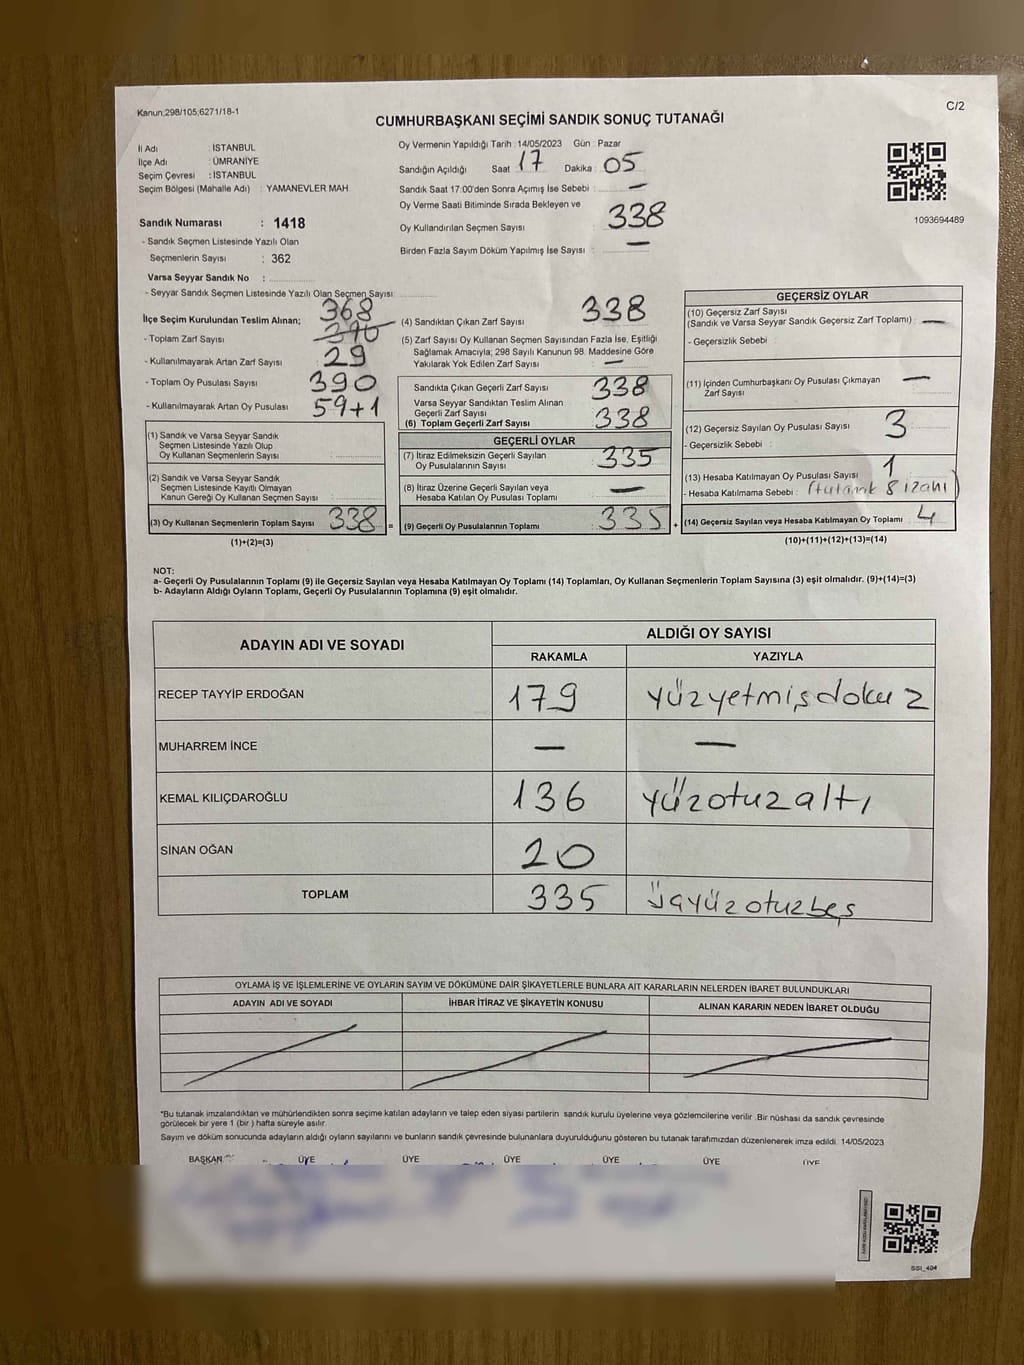 Kanun;298/105;6271/18-1
C/2
CUMHURBAŞKANI SEÇİMİ SANDIK SONUÇ TUTANAĞI
İl Adı : İSTANBUL
İlçe Adı : ÜMRANİYE
Seçim Çevresi : İSTANBUL
Seçim Bölgesi (Mahalle Adı) : YAMANEVLER MAH.
Sandık Numarası : 1418
- Sandık Seçmen Listesinde Yazılı Olan
Seçmenlerin Sayısı : 362
Varsa Seyyar Sandık No :
- Seyyar Sandık Seçmen Listesinde Yazılı Olan Seçmen Sayısı:
İlçe Seçim Kurulundan Teslim Alınan;
368
- Toplam Zarf Sayısı 390
- Kullanılmayarak Artan Zarf Sayısı 29
- Toplam Oy Pusulası Sayısı 390
- Kullanılmayarak Artan Oy Pusulası 59+1
(1) Sandık ve Varsa Seyyar Sandık
Seçmen Listesinde Yazılı Olup
Oy Kullanan Seçmenlerin Sayısı :
(2) Sandık ve Varsa Seyyar Sandık
Seçmen Listesinde Kayıtlı Olmayan
Kanun Gereği Oy Kullanan Seçmen Sayısı :
(3) Oy Kullanan Seçmenlerin Toplam Sayısı 338 =
(1)+(2)=(3)
Oy Vermenin Yapıldığı Tarih : 14/05/2023 Gün : Pazar
Sandığın Açıldığı Saat 17 Dakika : 05
Sandık Saat 17:00'den Sonra Açımış İse Sebebi : —
Oy Verme Saati Bitiminde Sırada Bekleyen ve
Oy Kullandırılan Seçmen Sayısı 338
Birden Fazla Sayım Döküm Yapılmış İse Sayısı : —
(4) Sandıktan Çıkan Zarf Sayısı 338
(5) Zarf Sayısı Oy Kullanan Seçmen Sayısından Fazla İse, Eşitliği
Sağlamak Amacıyla; 298 Sayılı Kanunun 98. Maddesine Göre
Yakılarak Yok Edilen Zarf Sayısı : —
Sandıkta Çıkan Geçerli Zarf Sayısı 338
Varsa Seyyar Sandıktan Teslim Alınan
Geçerli Zarf Sayısı
(6) Toplam Geçerli Zarf Sayısı 338
GEÇERLİ OYLAR
(7) İtiraz Edilmeksizin Geçerli Sayılan
Oy Pusulalarının Sayısı : 335
(8) İtiraz Üzerine Geçerli Sayılan veya
Hesaba Katılan Oy Pusulası Toplamı : —
(9) Geçerli Oy Pusulalarının Toplamı : 335 +
GEÇERSİZ OYLAR
(10) Geçersiz Zarf Sayısı
(Sandık ve Varsa Seyyar Sandık Geçersiz Zarf Toplamı) : —
- Geçersizlik Sebebi :
(11) İçinden Cumhurbaşkanı Oy Pusulası Çıkmayan
Zarf Sayısı —
(12) Geçersiz Sayılan Oy Pusulası Sayısı : 3
- Geçersizlik Sebebi :
(13) Hesaba Katılmayan Oy Pusulası Sayısı 1
- Hesaba Katılmama Sebebi : (tutanak 8 izahi)
(14) Geçersiz Sayılan veya Hesaba Katılmayan Oy Toplamı : 4
(10)+(11)+(12)+(13)=(14)
1093694489
NOT:
a- Geçerli Oy Pusulalarının Toplamı (9) ile Geçersiz Sayılan veya Hesaba Katılmayan Oy Toplamı (14) Toplamları, Oy Kullanan Seçmenlerin Toplam Sayısına (3) eşit olmalıdır. (9)+(14)=(3)
b- Adayların Aldığı Oyların Toplamı, Geçerli Oy Pusulalarının Toplamına (9) eşit olmalıdır.
ADAYIN ADI VE SOYADI ALDIĞI OY SAYISI
RAKAMLA YAZIYLA
RECEP TAYYİP ERDOĞAN 179 yüzyetmişdokuz
MUHARREM İNCE — —
KEMAL KILIÇDAROĞLU 136 yüzotuzaltı
SİNAN OĞAN 20
TOPLAM 335 üçyüzotuzbeş
OYLAMA İŞ VE İŞLEMLERİNE VE OYLARIN SAYIM VE DÖKÜMÜNE DAİR ŞİKAYETLERLE BUNLARA AİT KARARLARIN NELERDEN İBARET BULUNDUKLARI
ADAYIN ADI VE SOYADI İHBAR İTİRAZ VE ŞİKAYETİN KONUSU ALINAN KARARIN NEDEN İBARET OLDUĞU
*Bu tutanak imzalandıktan ve mühürlendikten sonra seçime katılan adayların ve talep eden siyasi partilerin sandık kurulu üyelerine veya gözlemcilerine verilir .Bir nüshası da sandık çevresinde
görülecek bir yere 1 (bir ) hafta süreyle asılır.
Sayım ve döküm sonucunda adayların aldığı oyların sayılarını ve bunların sandık çevresinde bulunanlara duyurulduğunu gösteren bu tutanak tarafımızdan düzenlenerek imza edildi. 14/05/2023
BAŞKAN ÜYE ÜYE ÜYE ÜYE ÜYE ÜYE
SSI_404